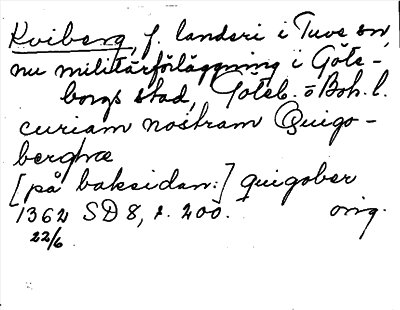 Kviberg, f. landeri i Tuve sn,
nu militärförläggning i Göte-
borgs stad, Göteb. o Boh. l.
curiam nostram Quigo-
berghæ
[på baksidan:] quigober
1362 SD 8, s. 200. orig.
22/6